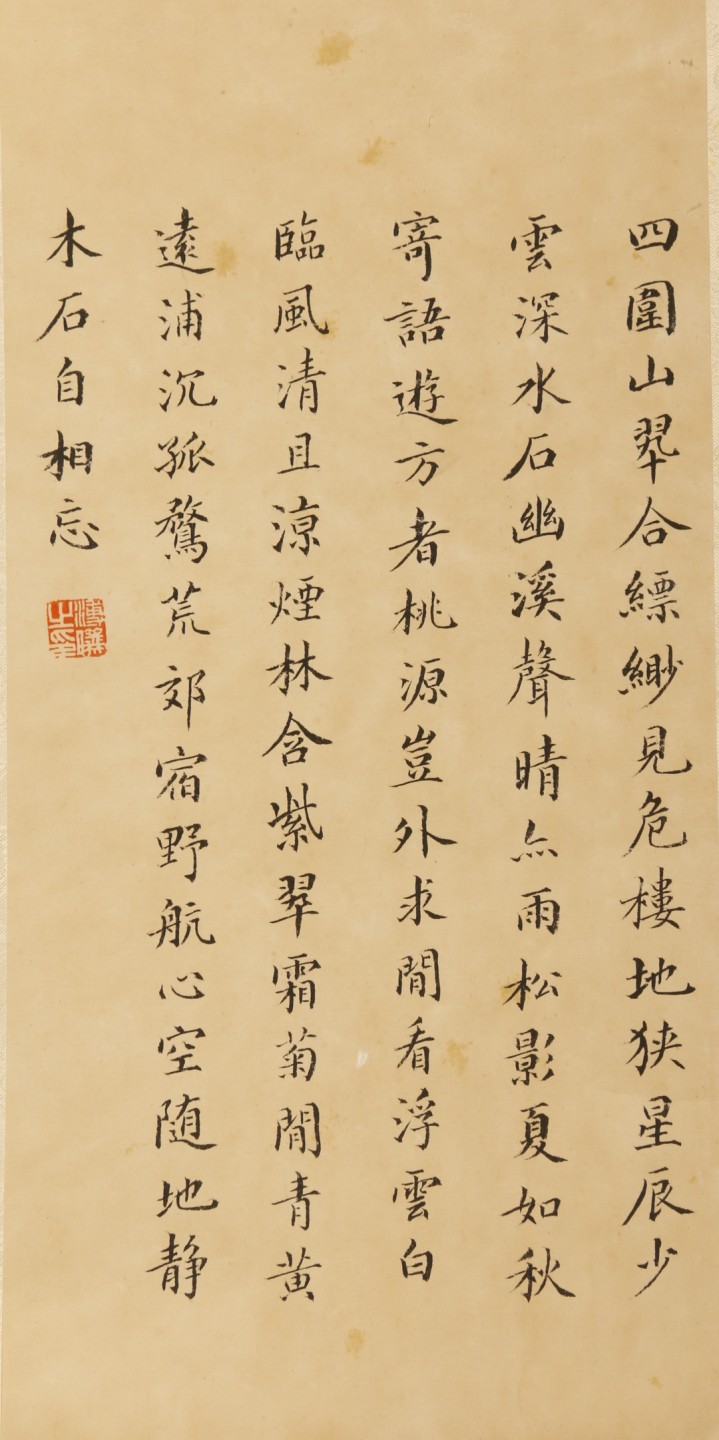 四圍山翠合縹緲見危樓地狹星辰少
雲深水石幽溪聲晴亦雨松影夏如秋
寄語遊方者桃源豈外求閒看浮雲白
臨風清且涼煙林含紫翠霜菊間青黃
遠浦沉孤鶩荒郊宿野航心空随地静
木石自相忘